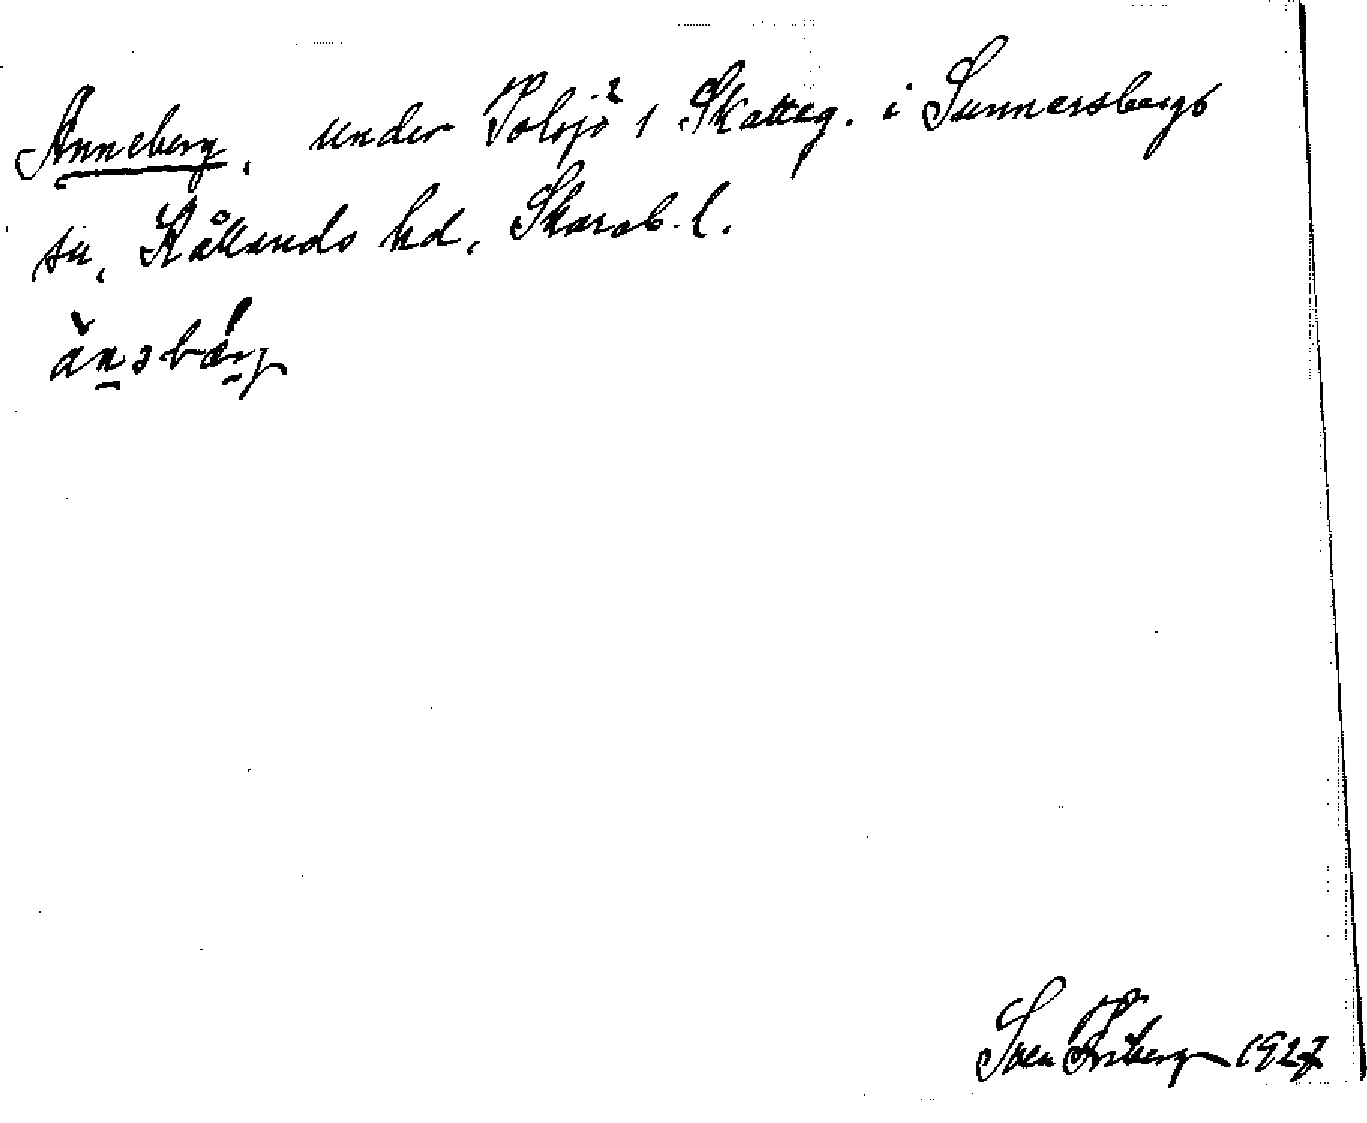 Anneberg, under Tolsjö 1 Skatteg. i Sunnersbergs
sn, Kållands hd, Skarab. l.
Sven Friberg 1927